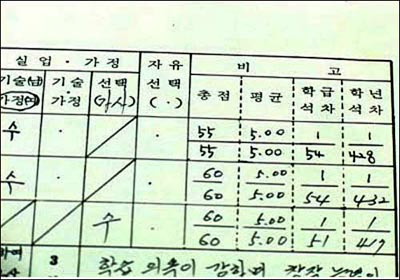 실업·가정 자유 선택 (·) 비고
기술(남) 가정(여) 기술·가정 선택 (가사) 총점 평균 학급 석차 학년 석차
수 · · 55/55 5.00/5.00 1/54 1/428
수 · · 60/60 5.00/5.00 1/54 1/432
수 · 60/60 5.00/5.00 1/51 1/419
3 학습 의욕이 강하며